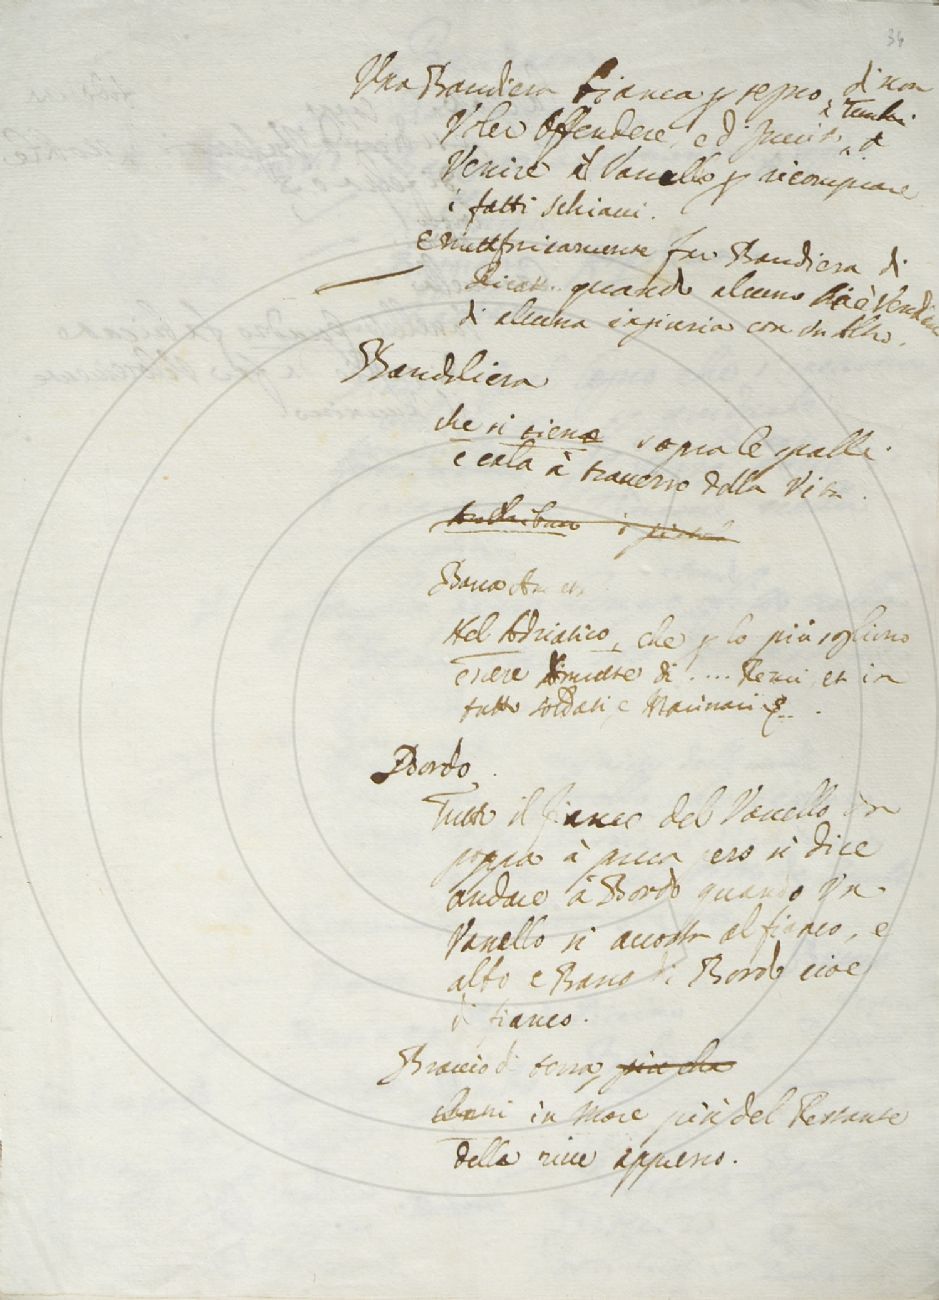 34
Una Bandiera bianca p segno, di non
voler offendere, ed invit. à
venire il Vassello p ricomprare
i fatti schiavi.
e mettaforicamente far Bandiera di
Ricatt. quando alcuno si è vendica
di alcuna ingiuria con un altro.
Bandoliera
che si tiene sopra le spalle
e cala à traverso della vita.
Nel Adriatico, che p lo più sogliono
essere Armate di .... Remi, et in
tutto soldati, e Marinari &.
Bordo.
Tutto il fianco del Vassello da
poppa à prua però si dice
andare à Bordo quando un
Vassello si accosta al fianco, e
alto e Basso di Bordo cioe
di fianco.
Braccio di terra, più che
in Mare più del Restante
della rive appresso.